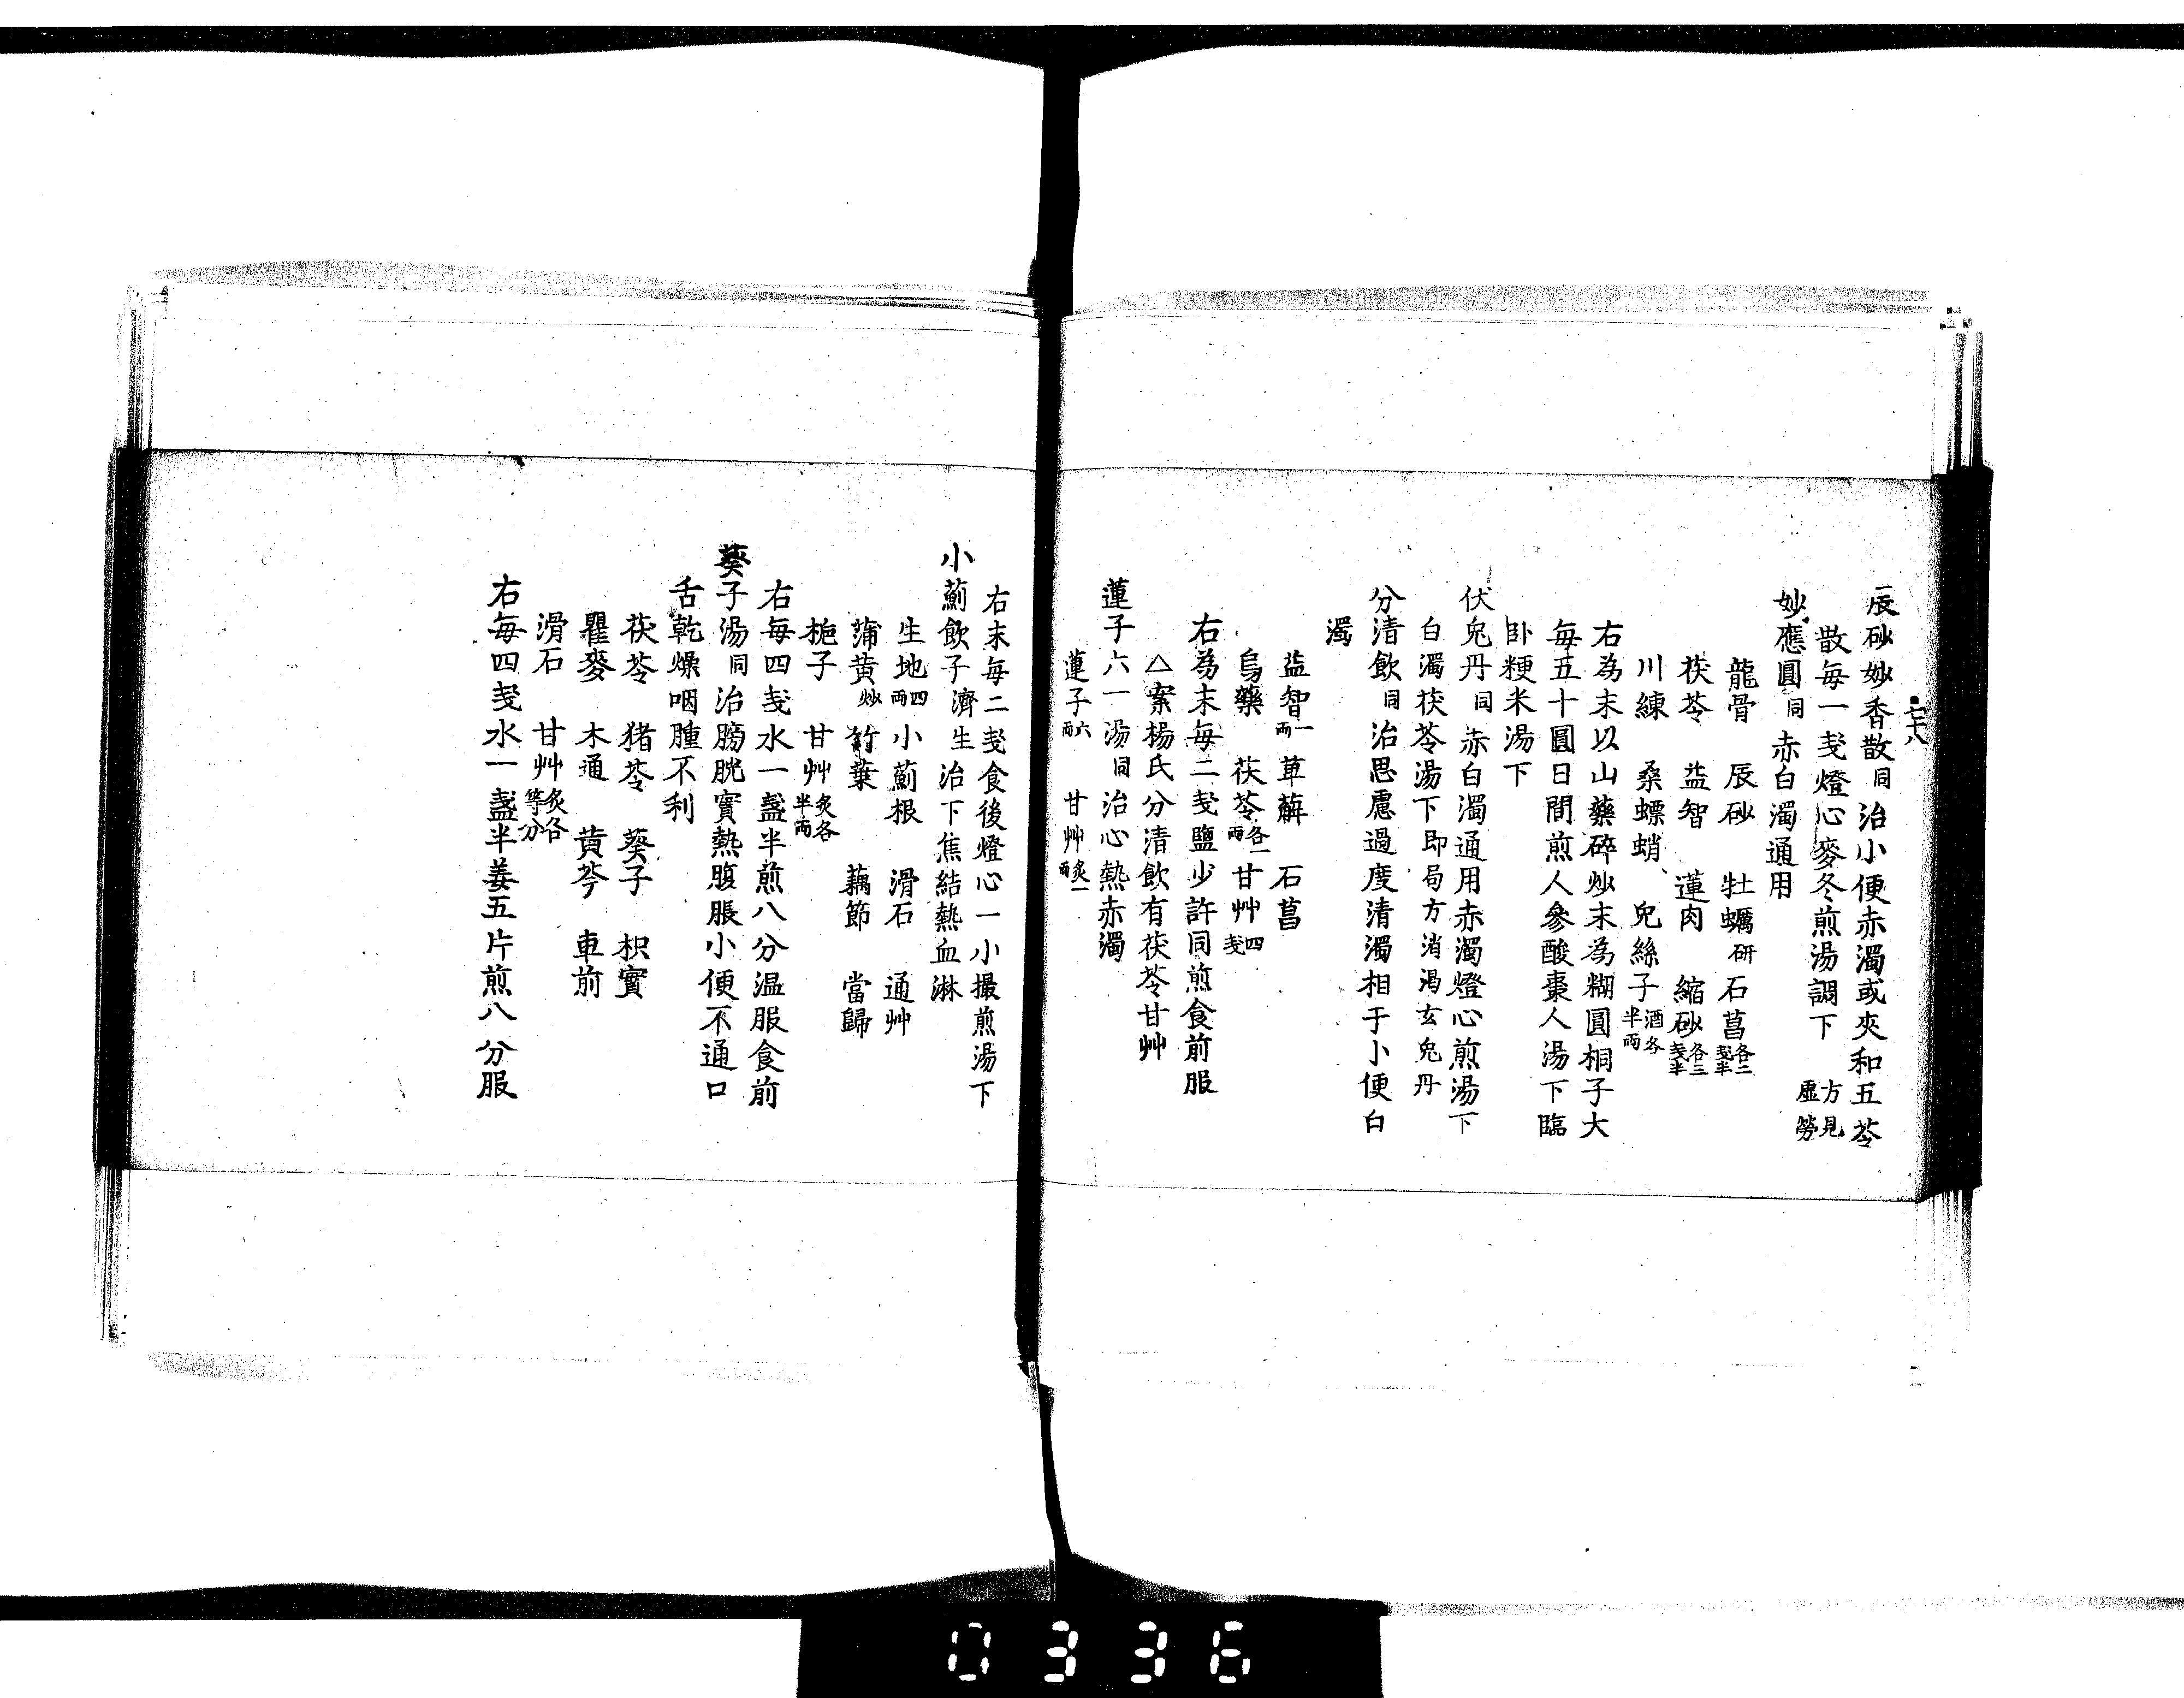 辰砂妙香散同治小便赤濁或夾和五苓
散每一戔燈心麥冬煎湯調下方見虛勞
妙應圓同赤白濁通用
龍骨 辰砂 牡蠣研 石菖各二戔半
茯苓 益智 蓮肉 縮砂各三戔半
川練 桑螵蛸 兔絲子酒各半兩
右為末以山藥碎炒末為糊圓桐子大
每五十圓日間煎人參酸棗人湯下臨
卧粳米湯下
伏兔丹同赤白濁通用赤濁燈心煎湯下
白濁茯苓湯下即局方消渴玄兔丹
分清飲同治思慮過度清濁相于小便白
濁
益智一兩 萆薢 石菖
烏藥 茯苓各一兩 甘艸四戔
右為末每二戔鹽少許同煎食前服
△案楊氏分清飲有茯苓甘艸
蓮子六一湯同治心熱赤濁
蓮子六兩 甘艸炙一兩
右末每二戔食後燈心一小撮煎湯下
小薊飲子濟生治下焦結熱血淋
生地四兩 小薊根 滑石 通艸
蒲黄炒 竹葉 藕節 當歸
梔子 甘艸炙各半兩
右每四戔水一盞半煎八分温服食前
葵子湯同治膀胱實熱腹脹小便不通口
舌乾燥咽腫不利
茯苓 猪苓 葵子 枳實
瞿麥 木通 黄芩 車前
滑石 甘艸炙各等分
右每四戔水一盞半姜五片煎八分服
0336